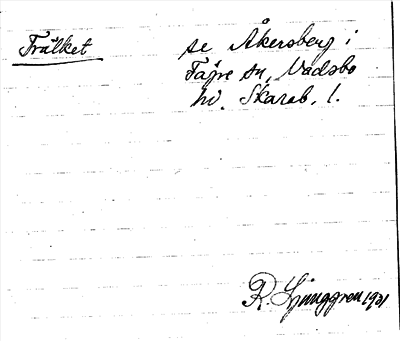 Trälket
se Åkersberg i
Fägre sn, Vadsbo
hd. Skarab. l.
R. Ljunggren 1931